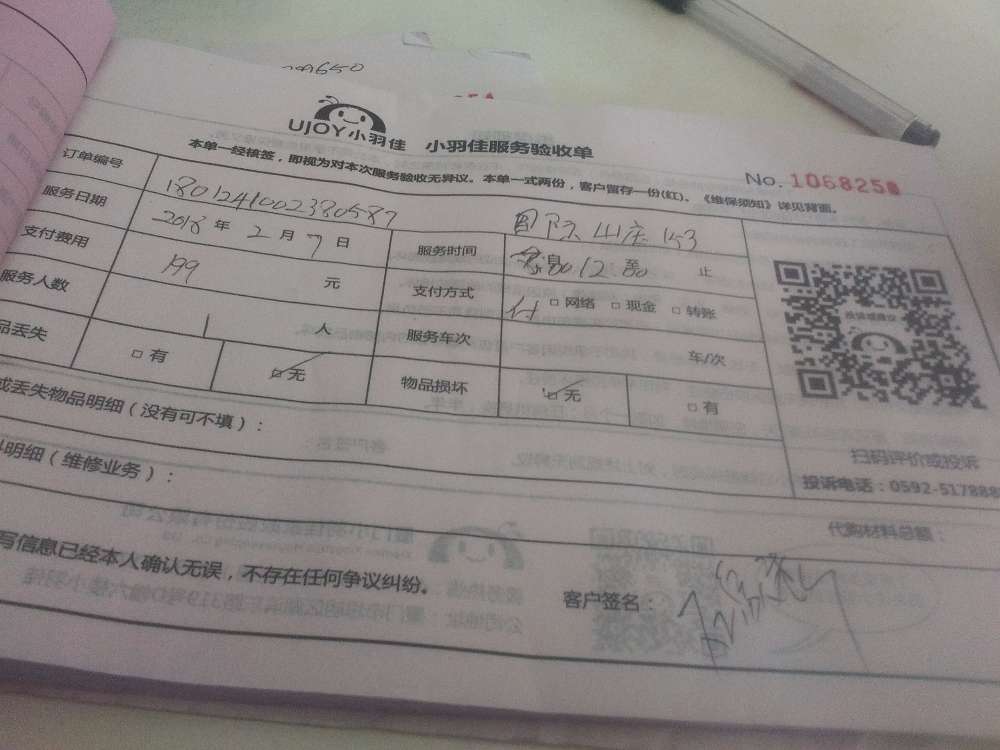 650
UJOY小羽佳 小羽佳服务验收单
No. 1068250
本单一经核签，即视为对本次服务验收无异议。本单一式两份，客户留存一份(红)。《维保须知》详见背面。
订单编号 1801241002380587 山庄 153
服务日期 2018 年 2 月 7 日 服务时间 至 止
支付费用 199 元 支付方式 付 □ 网络 □ 现金 □ 转账
服务人数 1 人 服务车次 车/次
品丢失 □ 有 □ 无 物品损坏 □ 无 □ 有
或丢失物品明细（没有可不填）：
扫码评价或投诉
投诉电话：0592-517888
明细（维修业务）：
代购材料总额：
写信息已经本人确认无误，不存在任何争议纠纷。
客户签名：